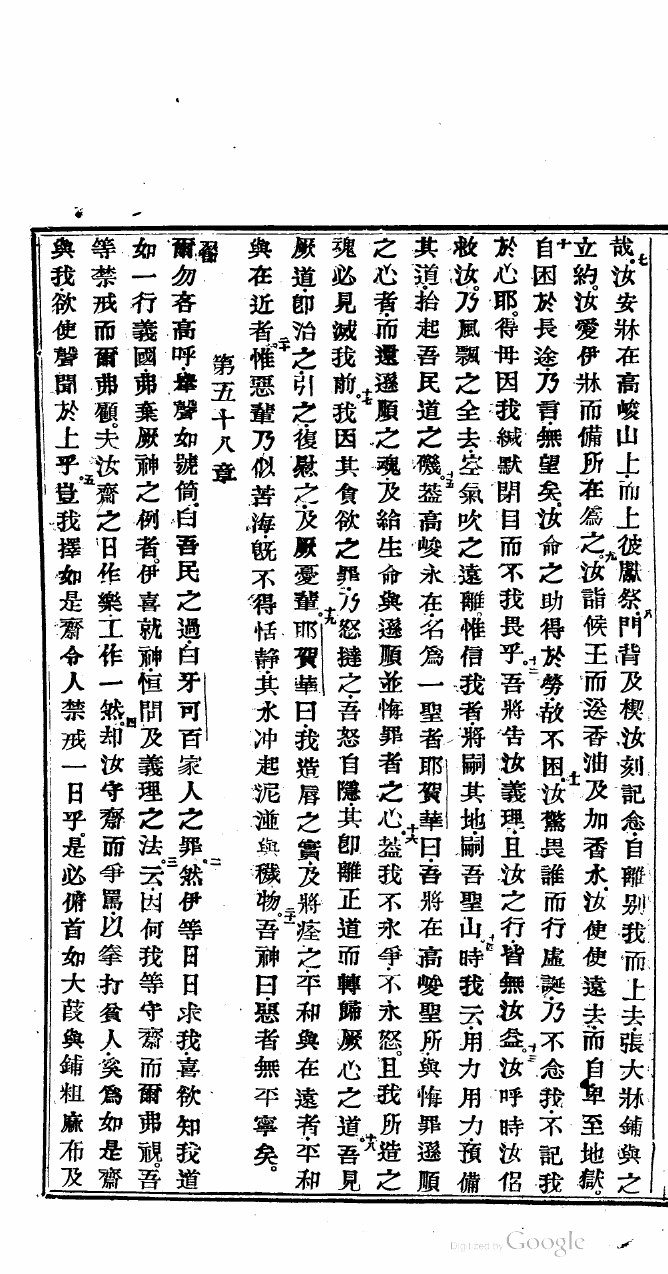 哉。七汝安牀在高峻山上而上彼獻祭。八門背及楔汝刻記念自離別我而上去張大牀鋪與之
立約。汝愛伊牀而備所在爲之。九汝詣候王而送香油及加香水。汝使使遠去而自卑至地獄。
十自困於長途乃言無望矣汝命之助得於勞故不困。十一汝驚畏誰而行虛誕乃不念我不記我
於心耶。得毋因我緘默閉目而不我畏乎。十二吾將告汝義理且汝之行皆無汝益。十三汝呼時汝侶
救汝。乃風飄之全去空氣吹之遠離惟信我者將嗣其地嗣吾聖山。十四時我云用力用力預備
其道抬起吾民道之磯。十五蓋高峻永在名爲一聖者耶賀華曰吾將在高峻聖所與悔罪遜順
之心者而還遜順之魂及給生命與遜順並悔罪者之心。十六蓋我不永爭不永怒。且我所造之
魂必見滅我前。十七我因其貪欲之罪乃怒撻之吾怒自隱其卽離正道而轉歸厥心之道。十八吾見
厥道卽治之引之復慰之及厥憂輩。十九耶賀華曰我造唇之實及將痊之平和與在遠者平和
與在近者。二十惟惡輩乃似苦海旣不得恬静其水冲起泥湴與穢物。二十一吾神曰惡者無平寧矣。
第五十八章
一節爾勿吝高呼舉聲如號筒白吾民之過白牙可百家人之罪。二然伊等日日求我喜欲知我道
如一行義國弗棄厥神之例者伊喜就神恒問及義理之法。三云因何我等守齋而爾弗視吾
等禁戒而爾弗顧。夫汝齋之日作樂工作一然。四却汝守齋而爭罵以拳打貧人奚爲如是齋
與我欲使聲聞於上乎。五豈我擇如是齋令人禁戒一日乎是必俯首如大葭與鋪粗麻布及
Digitized by Google